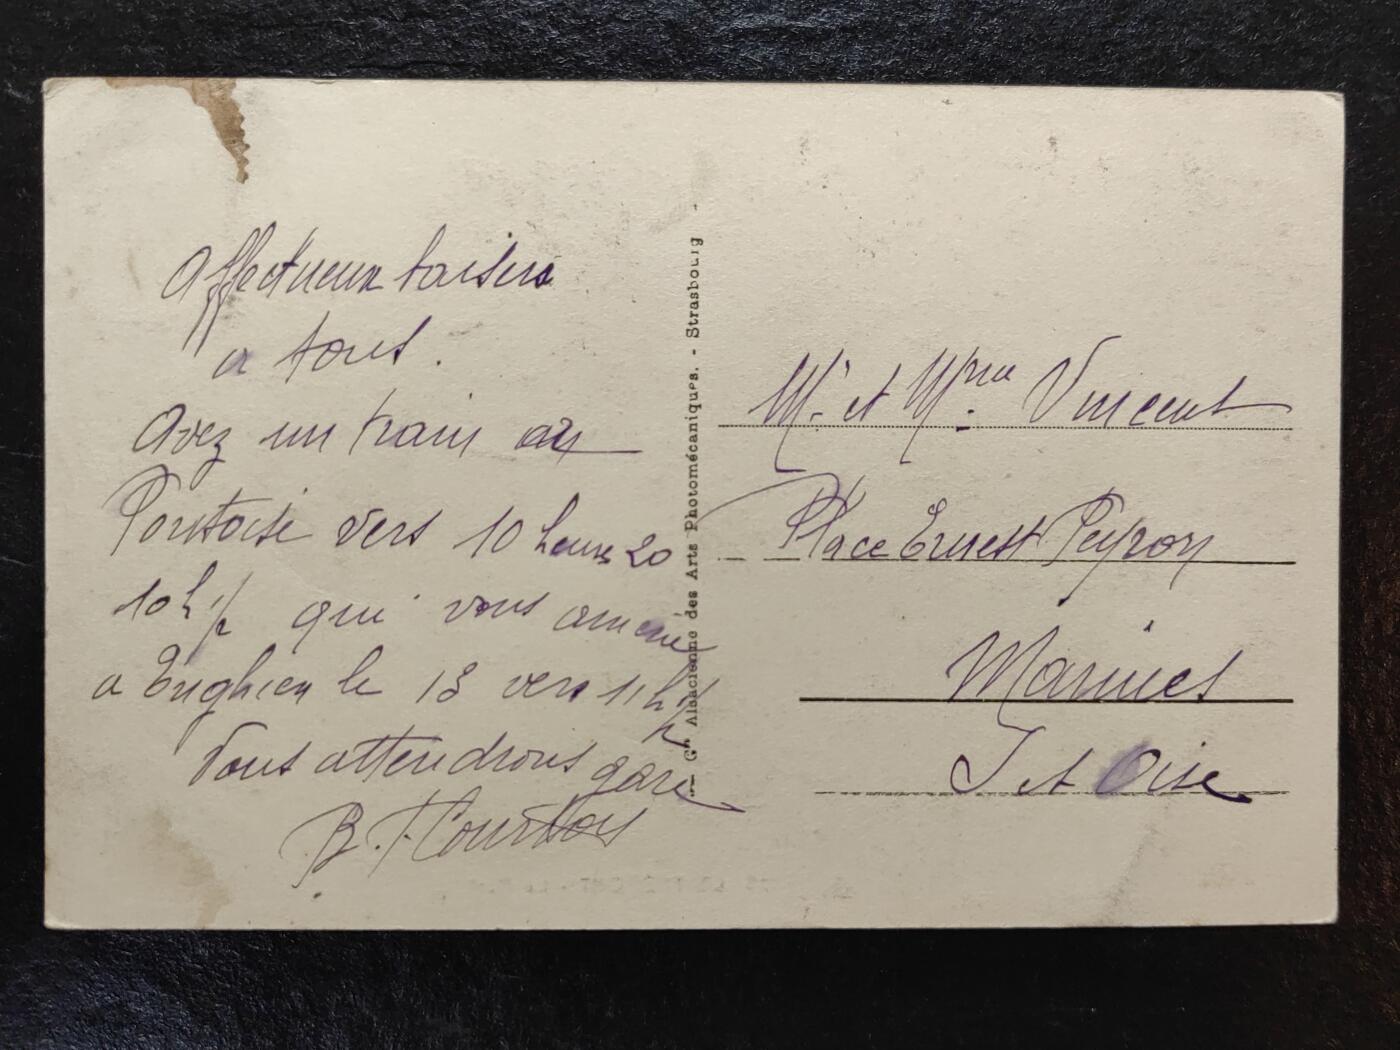 Affectueux baisers
a tous.
Avez un train a
Pontoise vers 10 heures 20
10h 1/2 qui vous amène
a Enghien le 13 vers 11h 1/2
Vous attendrons gare
B. Courtois
— Cie Alsacienne des Arts Photomécaniques. - Strasbourg -
Mr et Mme Vincent
Place Ernest Peyron
Marines
S et Oise